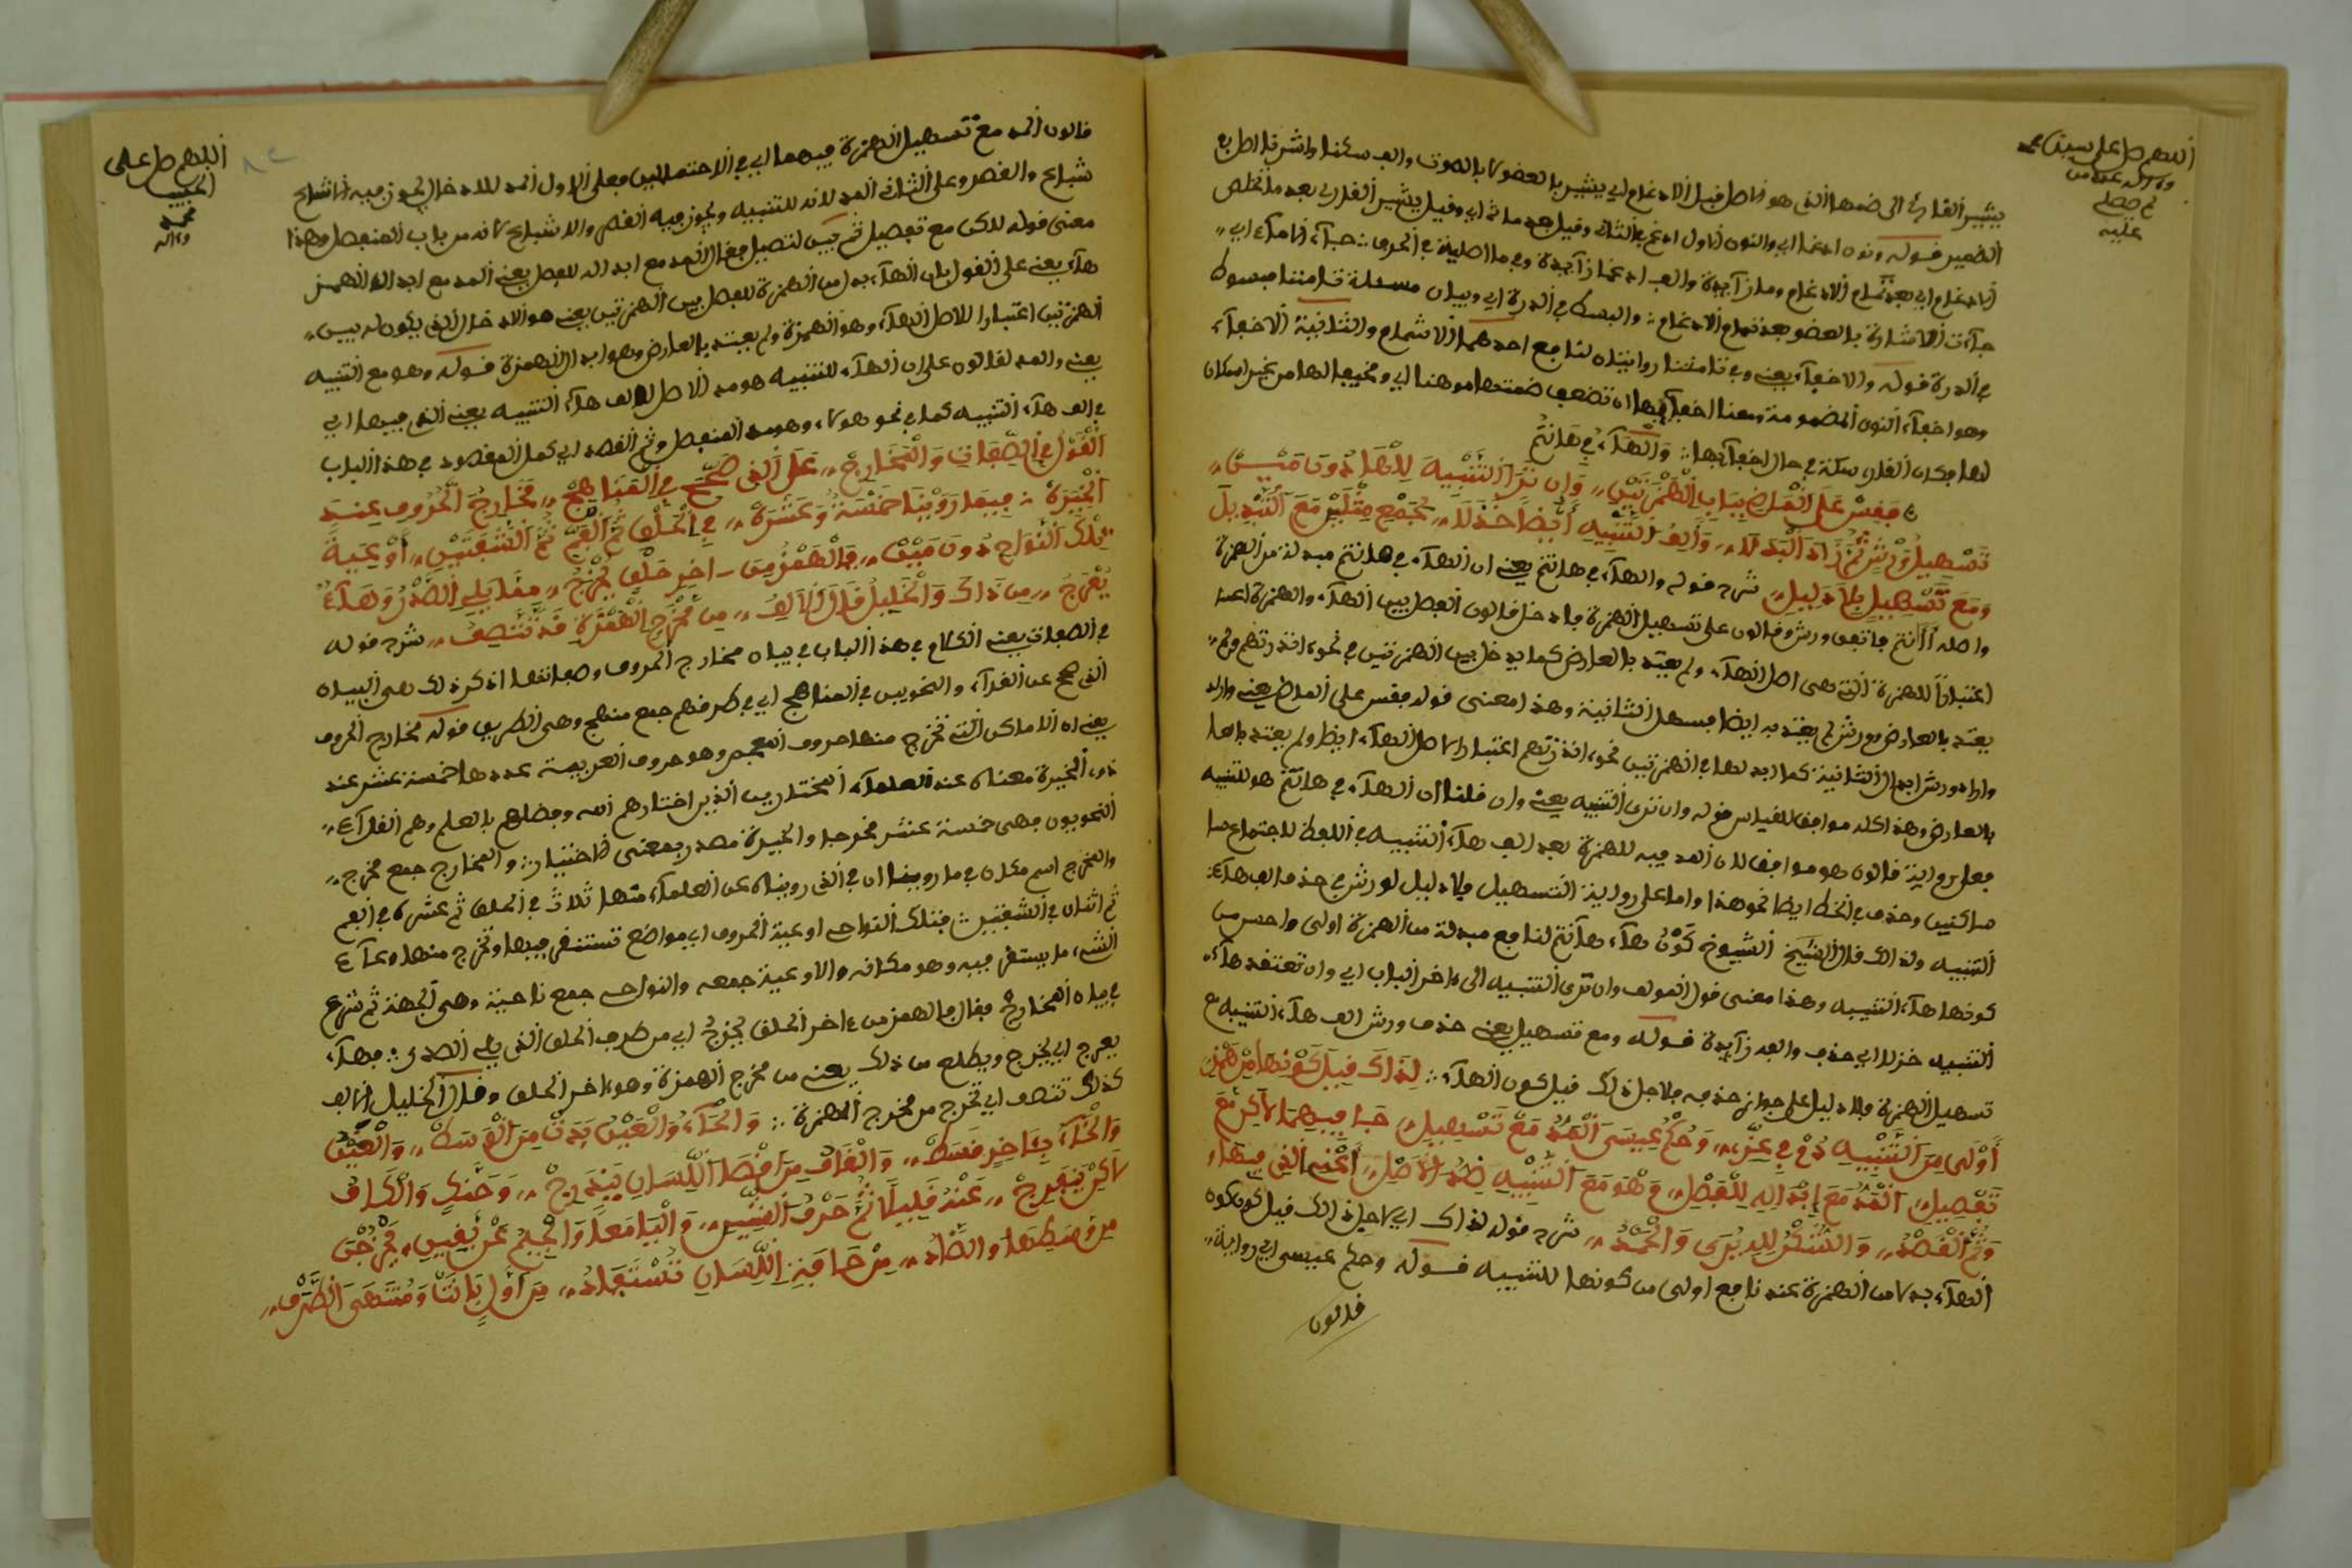 اللهم صل على سيدنا محمد
يشير القارئ الى ضمها الذى هو الاصل قبل الادغام اي يشير بالعضو لا بالصوت والب سكنا واشرفا اطبع
الضمير قوله ونون ادغما اي والنون الاول ادغم في الثاني وقيل بعد ما ثم اي وقيل يشير القارئ بعد ما تخلص
الادغام اي بعد تمام الادغام وما زآيدة والب ادغما زآيدة
جآءت الاشارة بالعضو بعد تمام الادغام والبسط في الدرة اي وبيان مسئلة تامننا مبسوط
في الدرة قوله والاخفآء يعنى وفي تامننا روايتان لنافع احدهما الاشمام والثانية الاخفآء
وهو اخفآء النون المضمومة ومعنا اخفآيها ان تضعف ضمتها
في حال اخفآيها وَالْهَآءُ فِي هَانتُمُ
فَفِسْ عَلَى الْعَارِضِ بِبَابِ الْهَمْزَتَيْنِ وَإِن تَرَ التَّنْبِيهَ لِلْهَا دُونَ مَيْسٍ
تَسْهِيلُ وَرْشٍ ثُمَّ زَادَ الْبَدَلَا وَأَلِفُ التَّنْبِيهِ أَيْضًا خَذَلَا بِجَمْعِ مِثْلَيْنِ مَعَ التَّبْدِيلِ
وَمَعَ تَسْهِيلٍ بِلَا دَلِيلِ شرح قوله والهآء في هانتم يعنى ان الهآء في هانتم مبدلة من الهمزة
واصله أأنتم فاتفق ورش وقالون على تسهيل الهمزة فادخل قالون الفصل بين الهآء والهمزة
اعتبارًا للهمزة التى هي اصل الهآء ولم يعتد بالعارض كما يدخل بين الهمزتين في نحو ءانذرتهم
يعتد بالعارض وورش لم يعتد به ايضا فسهل الثانية وهذا معنى قوله فقس على العارض يعنى
وزاد ورش ابدال الثانية كما ابدلها في الهمزتين نحو ءانذرتهم اعتبارا لاصل الهآء ايضا ولم يعتد
بالعارض وهذا كله موافق للقياس قوله وان ترى التنبيه يعنى وان قلنا ان الهآء في هانتم هو للتنبيه
فعلى رواية قالون هو موافق لان المد فيه للهمزة بعد الب هآء التنبيه في اللفظ لاجتماع
ساكنين وحذف في الخط ايضا نحو هذا واما على رواية التسهيل فلا دليل لورش في حذف الب هآء
التنبيه ولذالك قال الشيخ الشيوخ كَوْنُ هآء هآنتم لنافع مبدلة من الهمزة اولى واحسن من
كونها هآء التنبيه وهذا معنى قول المولف وان ترى التنبيه الى ءاخر الباب اي وان تعتقد هآء
التنبيه خزلا اي حذف والب زآيدة قوله ومع تسهيل يعنى حذف ورش الب هآء التنبيه مع
تسهيل الهمزة فلا دليل على جواز حذفه فلاجل ذلك قيل كون الهآء لِذَاكَ قِيلَ كَوْنُهَا مِنْ هَمْزٍ
أَوْلَى مِنَ التَّنْبِيهِ دُمْ فِي عِزٍّ وَحُكْمُ عِيسَى الْمَدُّ مَعْ تَسْهِيلِ جَا فِيهِمَا لَاكِنْ مَعَ
تَفْصِيلِ الْمَدُّ مَعَ إِبْدَالِهِ لِلْفَصْلِ وَهْوَ مَعَ التَّنْبِيهِ ضِدُّ الْأَصْلِ أَعْنِي الذى فيهَا
وَثَمَّ الْقَصْدُ وَالشُّكْرُ لِلهِ يُرَى وَالْحَمْدُ شرح قوله لذاك اي لاجل ذالك قيل كون
الهآء بدلا من الهمزة عند نافع اولى من كونها للتنبيه قوله وحكم عيسى اي رواية
قالون
اللهم صل على
الحبيب
محمد
وءاله
قالون المد مع تسهيل الهمزة فيهما اي في الاحتمالين فعلى الاول المد للادخال يجوز فيه الاشباع
والقصر وعلى الثاني المد لانه للتنبيه ويجوز فيه القصر والاشباع لانه من باب المنفصل وهذا
معنى قوله لاكن مع تفصيل ثم بين التفصيل فقال المد مع ابداله للفصل يعنى المد مع ابدال الهمز
هآء يعنى على القول بان الهآء بدل من الهمزة للفصل بين الهمزتين يعنى هو الادخال الذى يكون له بين
الهمزتين اعتبارا للاصل الهآء وهو الهمزة ولم يعتد بالعارض وهو ابدال الهمزة قوله وهو مع التنبيه
يعنى والمد لقالون على ان الهآء للتنبيه هو مد الاصل لالف هآء التنبيه يعنى الذى فيها اي
في الب هآء التنبيه كما في نحو هؤلاء وهو مد المنفصل وثم القصد اي كمل المقصود في هذا الباب
الْقَوْلُ فِي الصِّفَاتِ وَالْمَخَارِجْ عَلَى الَّذِى صَحَّ فِي الْمَنَاهِجْ مَخَارِجُ الْحُرُوفِ عِنْدَ
الْخِيَرَهْ فِيمَا رَوَيْنَا خَمْسَةٌ وَعَشَرَهْ فِي الْحَلْقِ ثُمَّ الْفَمِّ ثُمَّ الشَّفَتَيْنِ أَوْعِيَةٌ
تِلْكَ النَّوَاحِ دُونَ مَيْنْ فَالْهَمْزُ مِن ءَاخِرِ حَلْقٍ يَخْرُجُ مِمَّا يَلِي الصَّدْرَ وَهَآءٌ
يَعْرُجُ مِن ذَاكَ وَالْخَلِيلُ قَالَ الْأَلِفُ مِن مَخْرَجِ الْهَمْزَةِ قَدْ تَتَّصِفُ شرح قوله
في الصفات يعنى الكلام في هذا الباب في بيان مخارج الحروف وصفاتها اذكر ذلك على البيان
الذى صح عن القرآء والنحويين في المناهج اي في طرقهم جمع منهج وهى الطريق قوله مخارج الحروف
يعنى ان الاماكن التى تخرج منها حروف المعجم وهو حروف العربية عددها خمسة عشر عند
ذوى الخيرة معناه عند العلمآء المختارين الذين اختارهم الله وفضلهم بالعلم وهم القرآء
النحويون فهى خمسة عشر مخرجا والخيرة مصدر بمعنى الاختيار والمخارج جمع مخرج
والمخرج اسم مكان في ما روينا اي في الذى رويناه عن العلمآء منها ثلاث في الحلق ثم عشرة في الفم
ثم اثنان في الشفتين فتلك النواحى اوعية الحروف اي مواضع تستقر فيها وتخرج منها وعآء
الشىء ما يستقر فيه وهو مكانه والاوعية جمعه والنواحى جمع ناحية وهى الجهة ثم شرع
في بيان المخارج فقال فالهمز من ءاخر الحلق يخرج اي من طرف الحلق الذى يلى الصدر فهآء
يعرج اي يخرج ويطلع من ذلك يعنى من مخرج الهمزة وهو ءاخر الحلق وقال الخليل الالف
كذلك تتصف اي تخرج من مخرج الهمزة وَالْحَآءُ وَالْعَيْنُ بَدَتْ مِنَ الْوَسَطْ وَالْغَيْنُ
وَالْخَآءُ بِئَاخِرٍ فَقَطْ وَالْقَافُ مِنْ أَقْصَا اللِّسَانِ يَنْدَرِجْ وَحَنَكٍ وَالْكَافُ
لَاكِنْ يَنفَرِجْ عَنْهُ قَلِيلًا ثُمَّ حَرْفُ الشِّينِ وَالْيَا مَعًا وَالْجِيمُ عَنْ يَقِينِ يَخْرُجْنَ
مِنْ وَسَطِهَا وَالضَّادُ مِنْ حَافَةِ اللِّسَانِ تُسْتَفَادُ مِنْ أَوَّلٍ بَانَتْ وَمُنتَهَى الطَّرَفْ